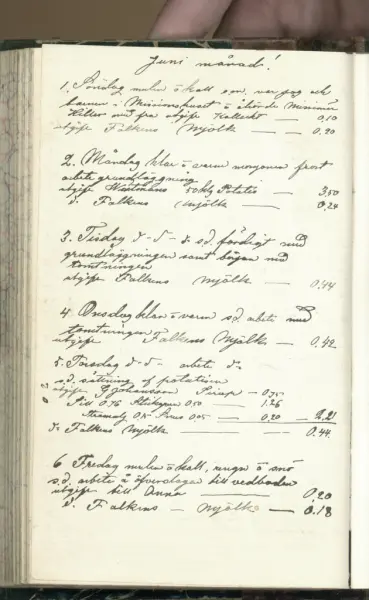 Juni månad!
1. Söndag mulen ō kall s.v. var jag och
barnen i Missionshuset ō åhörde Missionär
Kollect — 0,10
utgift Falkens Mjölk — — 0.20
2. Måndag klar ō varm morgonen frost
arbete grundläggning
utgift 50 kg Potatis — 3,50
d. Falkens Mjölk — 0.24
3. Tisdag d - d - d. s.d. färdigt med
grundläggningen samt började med
tomtningen
utgift Falkens Mjölk — 0,44
4. Onsdag klar ō varm s.d. arbete med
tomtningen
utgift Falkens Mjölk — 0.42
5. Torsdag d - d - arbete d:
s.d. sättning af potatisen
utgift G Johansson Sirap — 0,75
Sill 0.76 0,50 — 1,26
0,15 0,05 — 0,20 — 2,21
d: Falkens Mjölk — 0.44
6 Fredag mulen ō kall, regn ō snö
s.d. arbete å öfverlaget till vedboden
utgift till Anna — 0,20
d. Falkens — Mjölk — 0.18